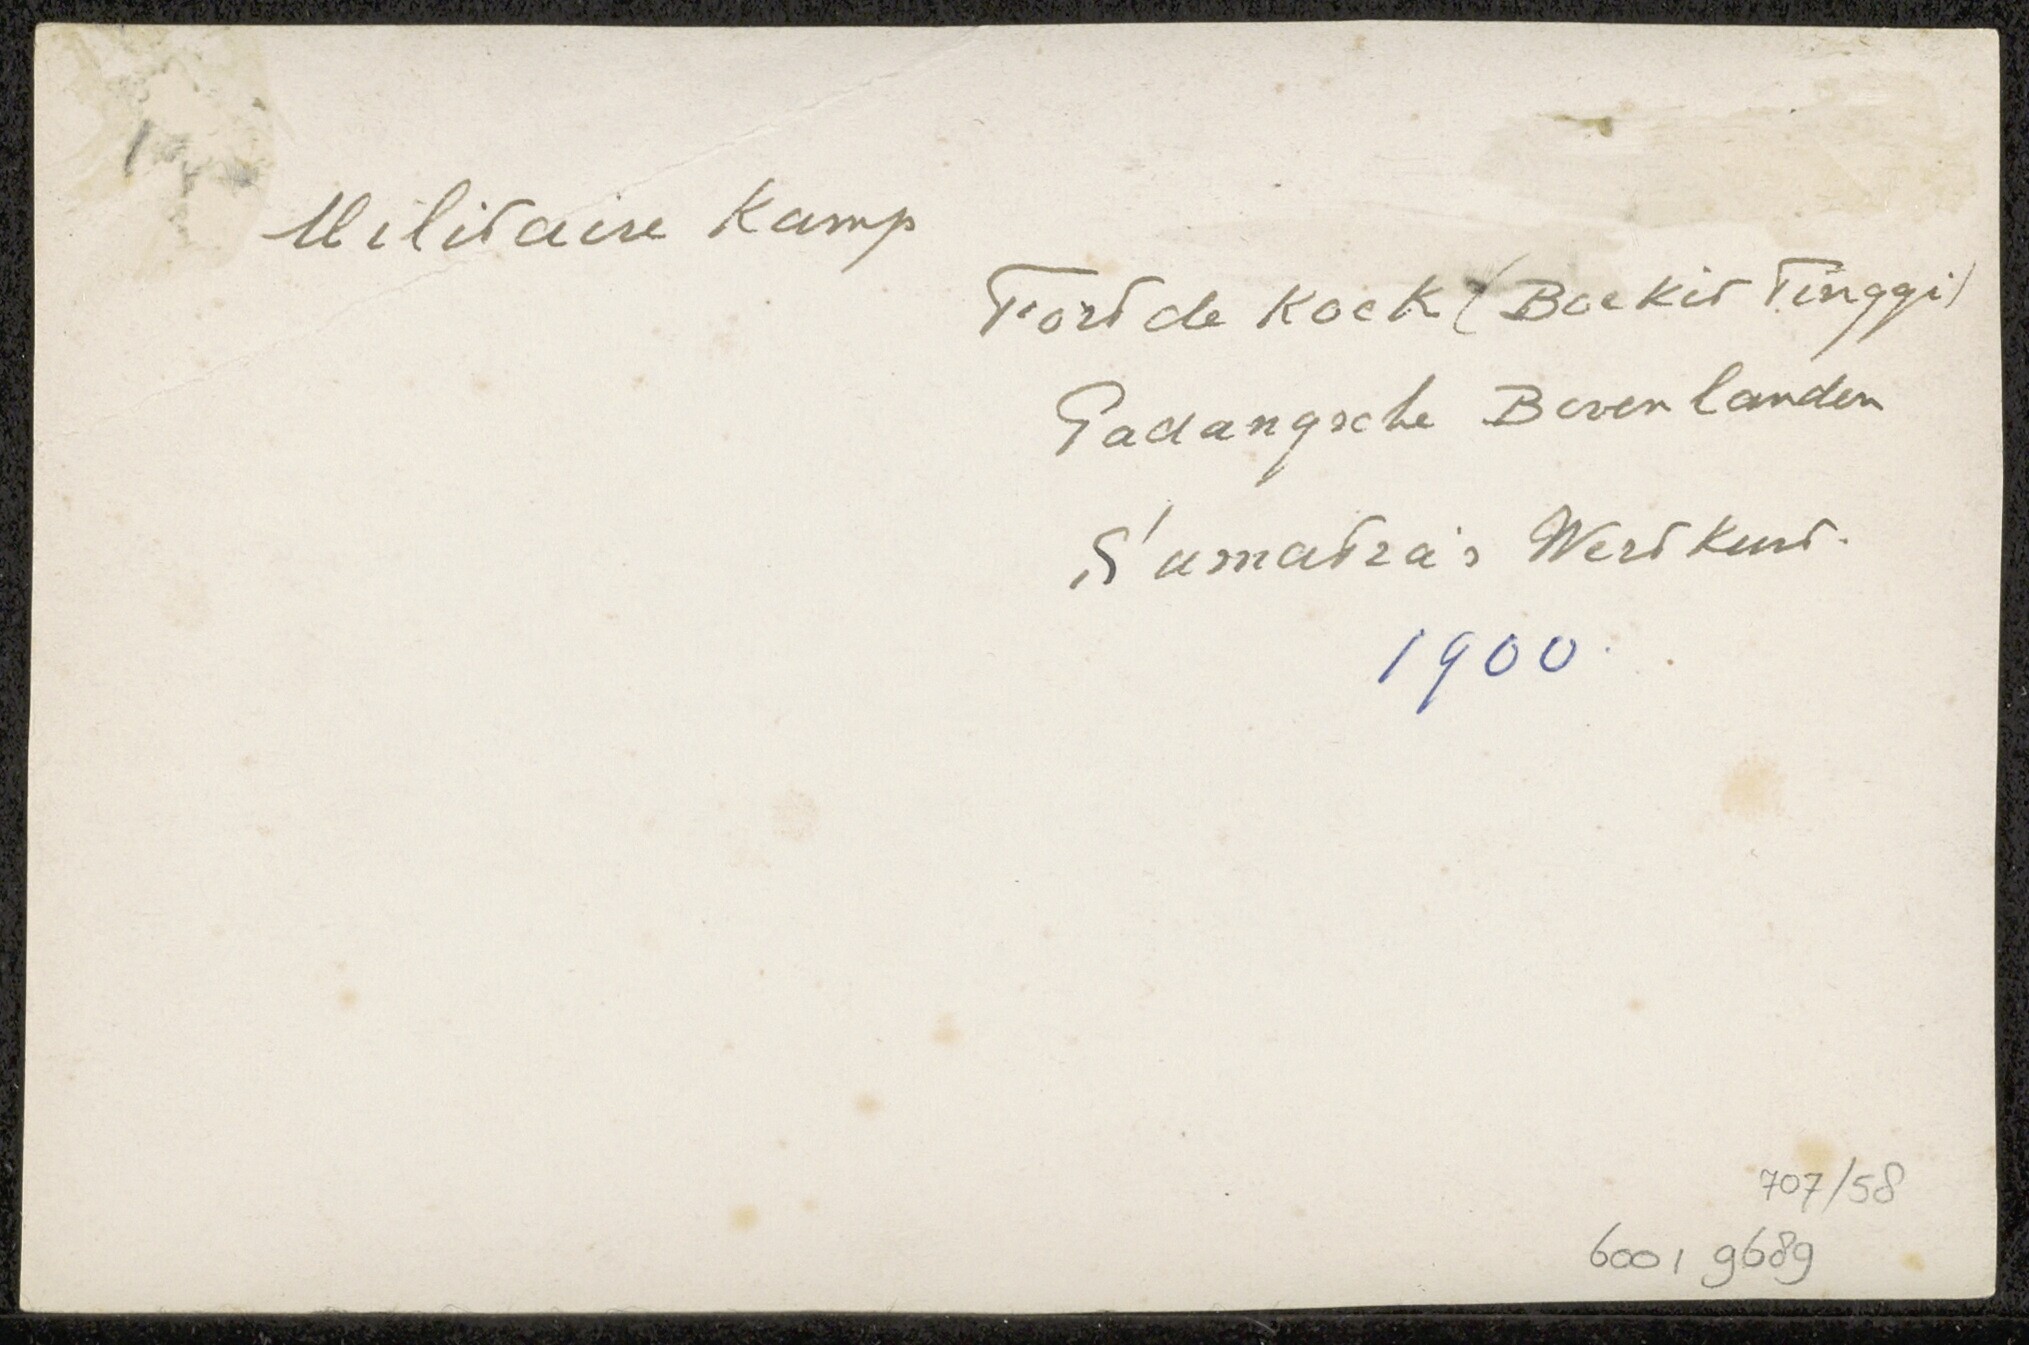 Militaire Kamp
Fort de Kock (Boekit Tinggi)
Padangsche Bovenlanden
Sumatra's Westkust.
1900.
707/58
6001 9689